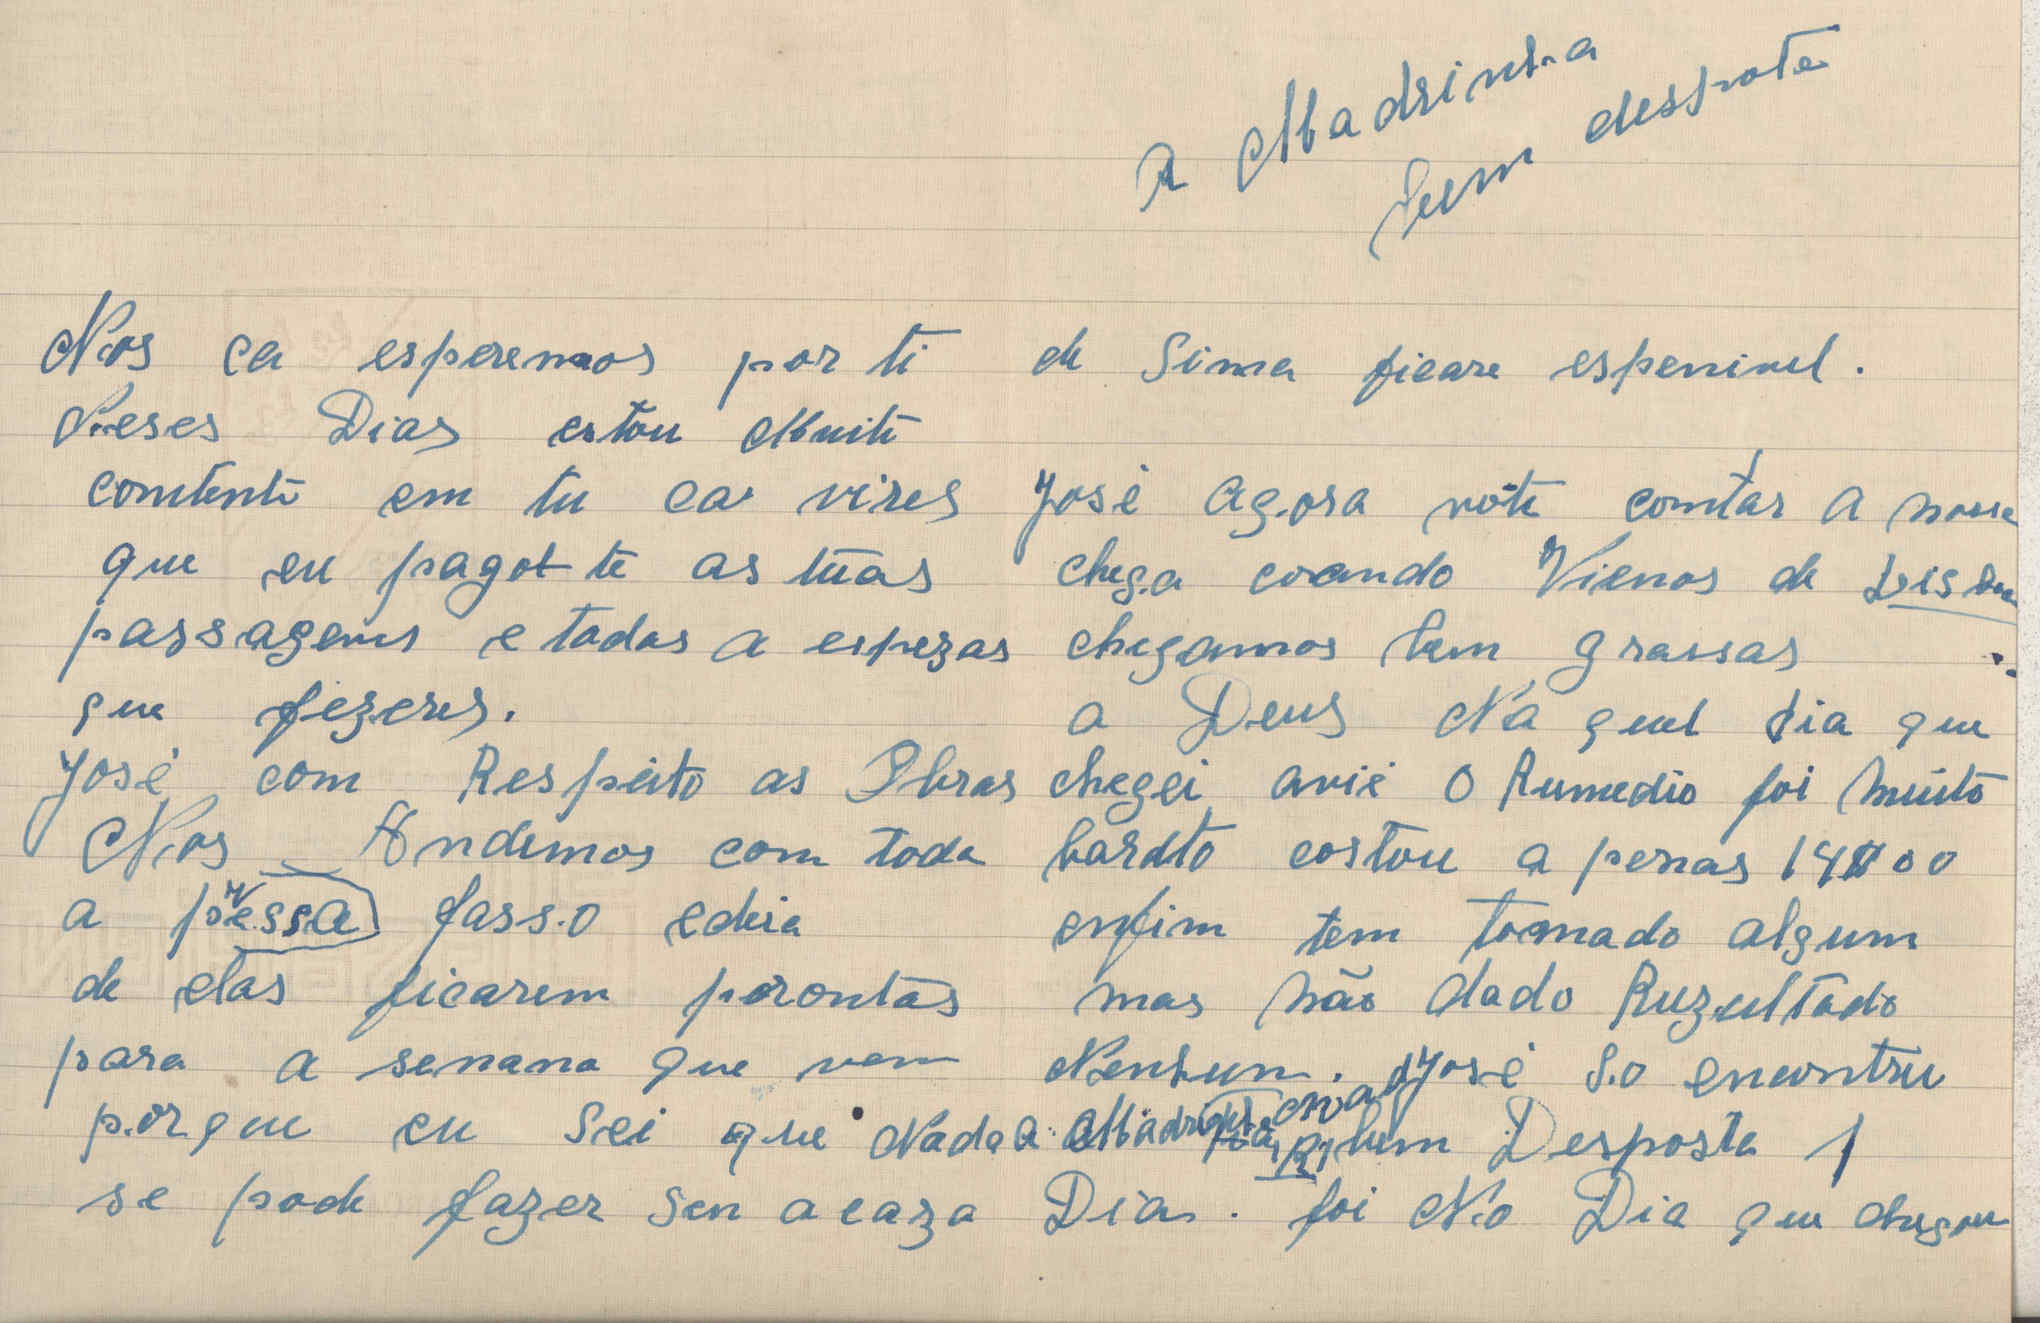 A Madrinha
bem desposta
Nos ca esperemos por ti
Neses Dias estou Muito
contente em tu ca vires
que eu pagot te as tuas
passagems e todas a espezas
que fezeres.
José com Respeito as Obras
Nos Andemos com toda
a pressa fasso edeia
de elas ficarem porontas
para a semana que vem
porque eu Sei que Nada
se pode fazer sen a caza
de Sima ficare espenivel.
José Agora vote contar A nossa
chega coando Viemos de Lisboa
chegamos bem grassas
a Deus Na quel dia que
chegei avié o Rumedio foi Muito
barato costou a penas 14$00
enfim tem tomado algum
mas não dado Ruzultado
Nenhum. José So encontru
a Madrinha bem Desposta 1
Dia. foi No Dia que chegou